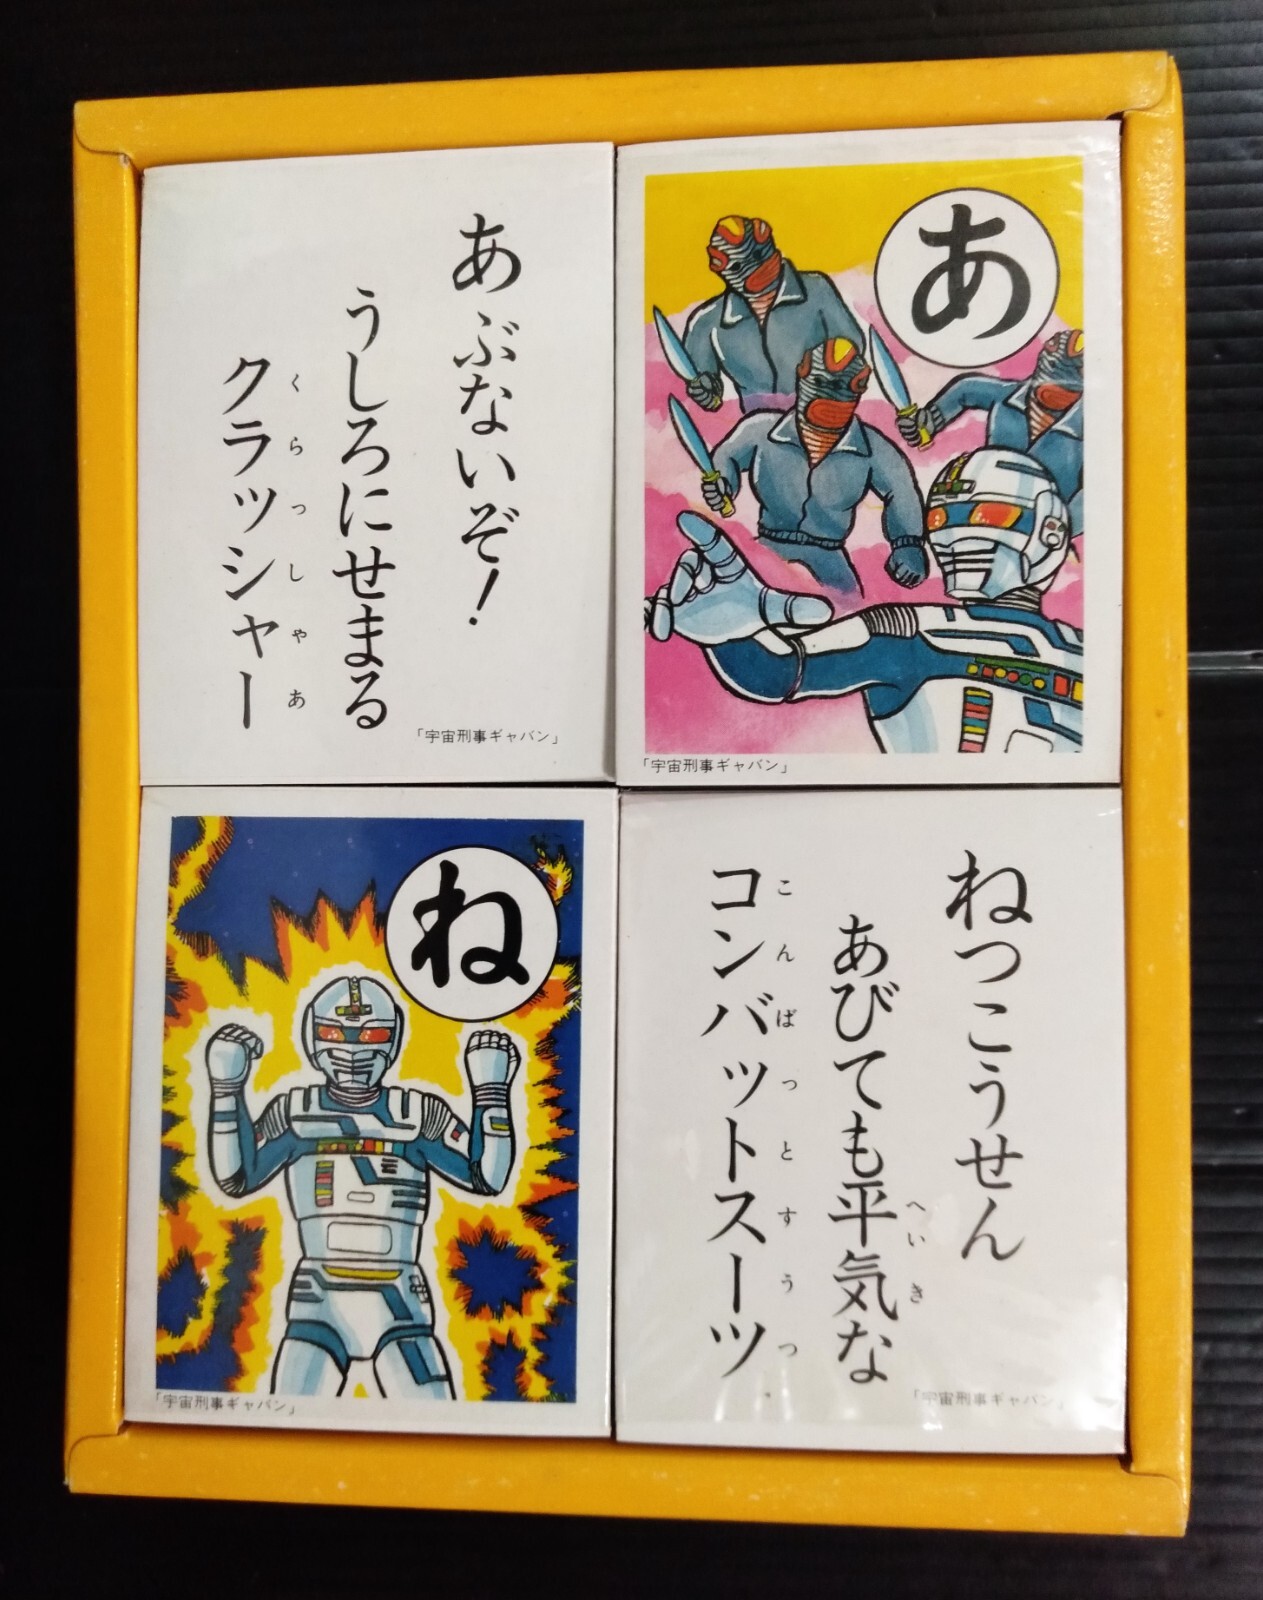 あぶないぞ!
うしろにせまる
クラッシャー
くらっしゃあ
「宇宙刑事ギャバン」
あ
「宇宙刑事ギャバン」
ね
「宇宙刑事ギャバン」
ねつこうせん
あびても平気な
へいき
コンバットスーツ
こんばっとすうつ
「宇宙刑事ギャバン」